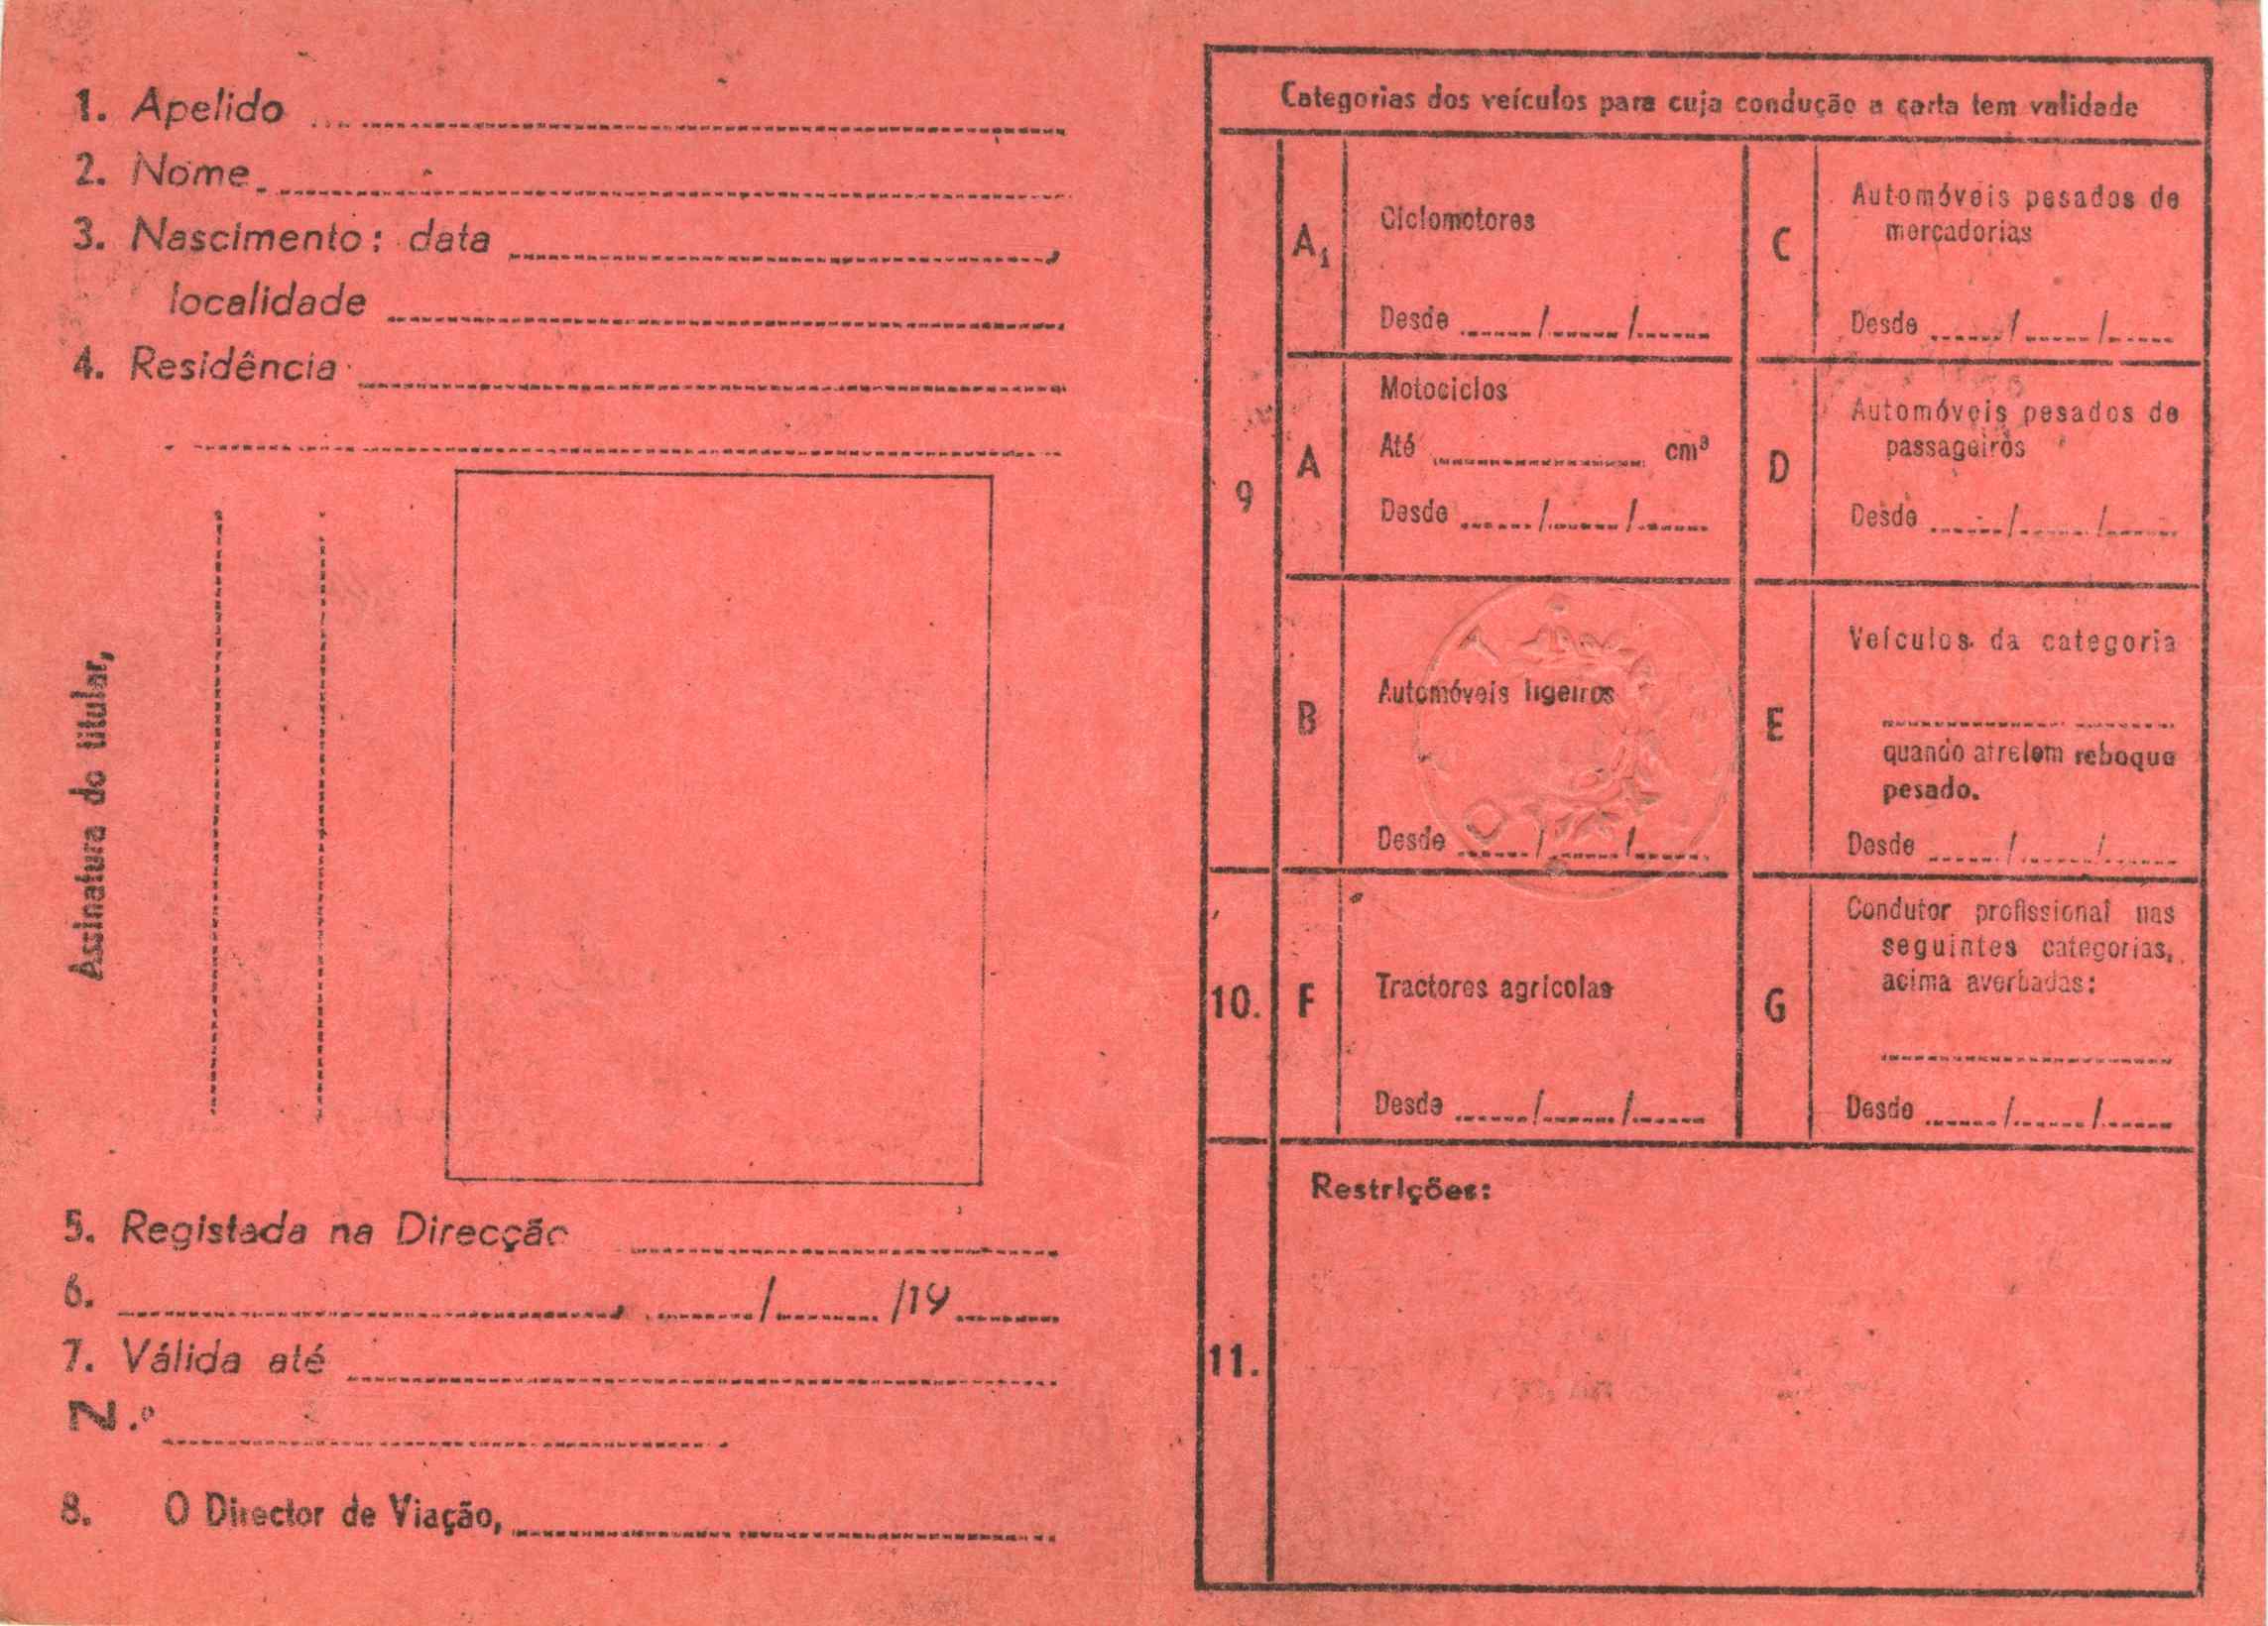 1. Apelido
2. Nome
3. Nascimento: data
localidade
4. Residência
Assinatura do titular,
5. Registada na Direcção
6. / /19
7. Válida até
N.º
8. O Director de Viação,
Categorias dos veículos para cuja condução a carta tem validade
9
A1
Ciclomotores
Desde / /
C
Automóveis pesados de
mercadorias
Desde / /
A
Motociclos
Até cm³
Desde / /
D
Automóveis pesados de
passageiros
Desde / /
B
Automóveis ligeiros
Desde / /
E
Veículos da categoria
quando atrelem reboque
pesado.
Desde / /
10.
F
Tractores agrícolas
Desde / /
G
Condutor profissional nas
seguintes categorias,
acima averbadas:
Desde / /
11.
Restrições: